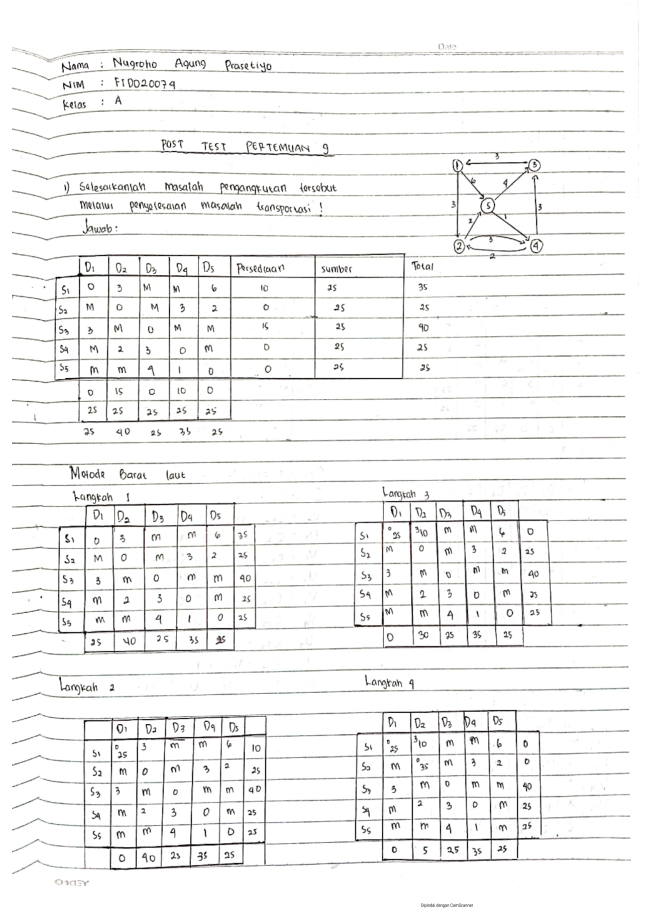 Date
Nama : Nugroho Agung Prasetiyo
NIM : F1D020074
Kelas : A
POST TEST PERTEMUAN 9
1) Selesaikanlah masalah pengangkutan tersebut
melalui penyelesaian masalah transportasi !
Jawab :
1 3 3
6 4
3 5 3
2 1
2 3 4
2
D1 D2 D3 D4 D5 Persediaan sumber Total
S1 0 3 M M 6 10 25 35
S2 M 0 M 3 2 0 25 25
S3 3 M 0 M M 15 25 40
S4 M 2 3 0 M 0 25 25
S5 M M 4 1 0 0 25 25
0 15 0 10 0
25 25 25 25 25
25 40 25 35 25
Metode Barat laut
Langkah 1
D1 D2 D3 D4 D5
S1 0 3 m m 6 35
S2 M 0 m 3 2 25
S3 3 m 0 m m 40
S4 m 2 3 0 m 25
S5 m m 4 1 0 25
25 40 25 35 25
Langkah 3
D1 D2 D3 D4 D5
S1 0 25 3 10 m m 6 0
S2 M 0 m 3 2 25
S3 3 m 0 m m 40
S4 M 2 3 0 m 25
S5 M m 4 1 0 25
0 30 25 35 25
Langkah 2
D1 D2 D3 D4 D5
S1 0 25 3 m m 6 10
S2 m 0 m 3 2 25
S3 3 m 0 m m 40
S4 m 2 3 0 m 25
S5 m m 4 1 0 25
0 40 25 35 25
Langkah 4
D1 D2 D3 D4 D5
S1 0 25 3 10 m m 6 0
S2 m 0 35 m 3 2 0
S3 3 m 0 m m 40
S4 m 2 3 0 m 25
S5 m m 4 1 m 25
0 5 25 35 25
Dipindai dengan CamScanner